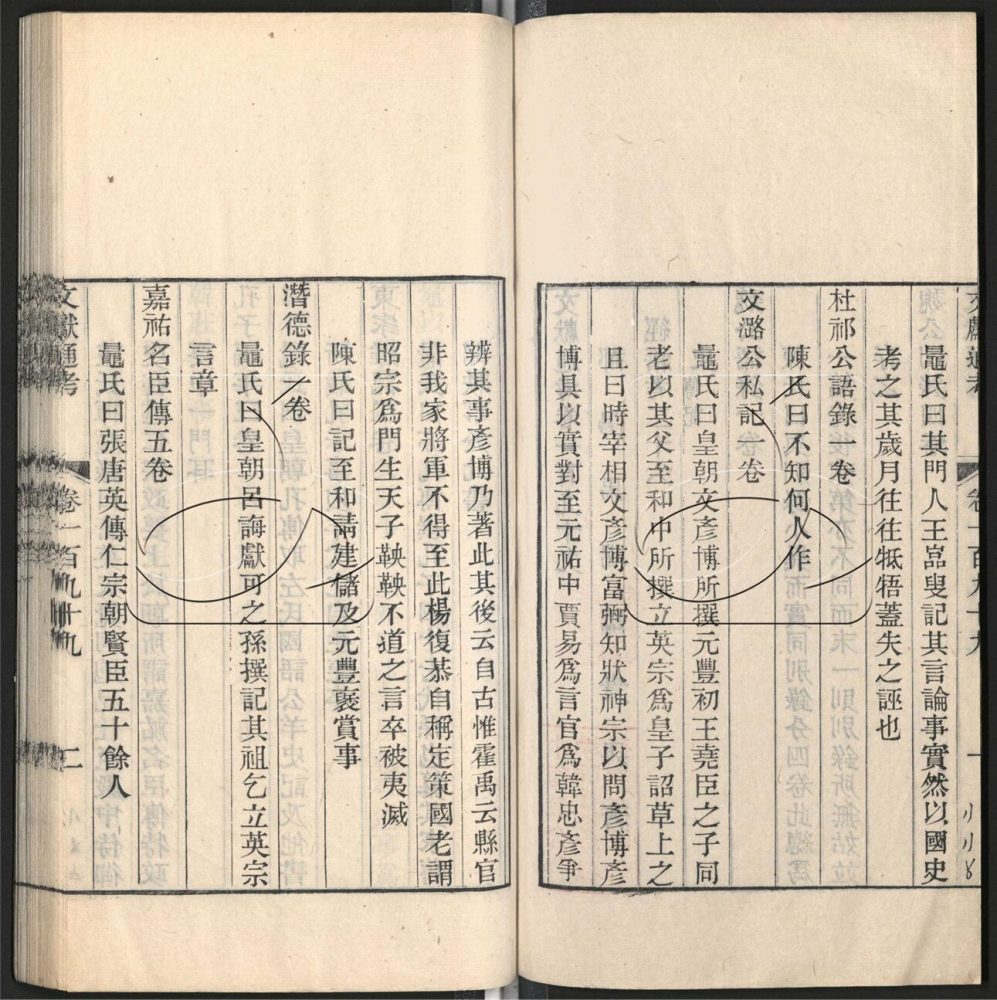 文獻通考 卷一百九十九 一
鼂氏曰其門人王嵓叟記其言論事實然以國史
考之其歲月往往牴牾蓋失之誣也
杜祁公語錄一卷
陳氏曰不知何人作
文潞公私記一卷
鼂氏曰皇朝文彥博所撰元豐初王堯臣之子同
老以其父至和中所撰立英宗爲皇子詔草上之
且曰時宰相文彥博富弼知狀神宗以問彥博彥
博具以實對至元祐中賈易爲言官爲韓忠彥爭
辨其事彥博乃著此其後云自古惟霍禹云縣官
非我家將軍不得至此楊復恭自稱定策國老謂
昭宗爲門生天子鞅鞅不道之言卒被夷滅
陳氏曰記至和請建儲及元豐褒賞事
潛德錄一卷
鼂氏曰皇朝呂誨獻可之孫撰記其祖乞立英宗
言章
嘉祐名臣傳五卷
鼂氏曰張唐英傳仁宗朝賢臣五十餘人
文獻通考 卷一百九十九 二